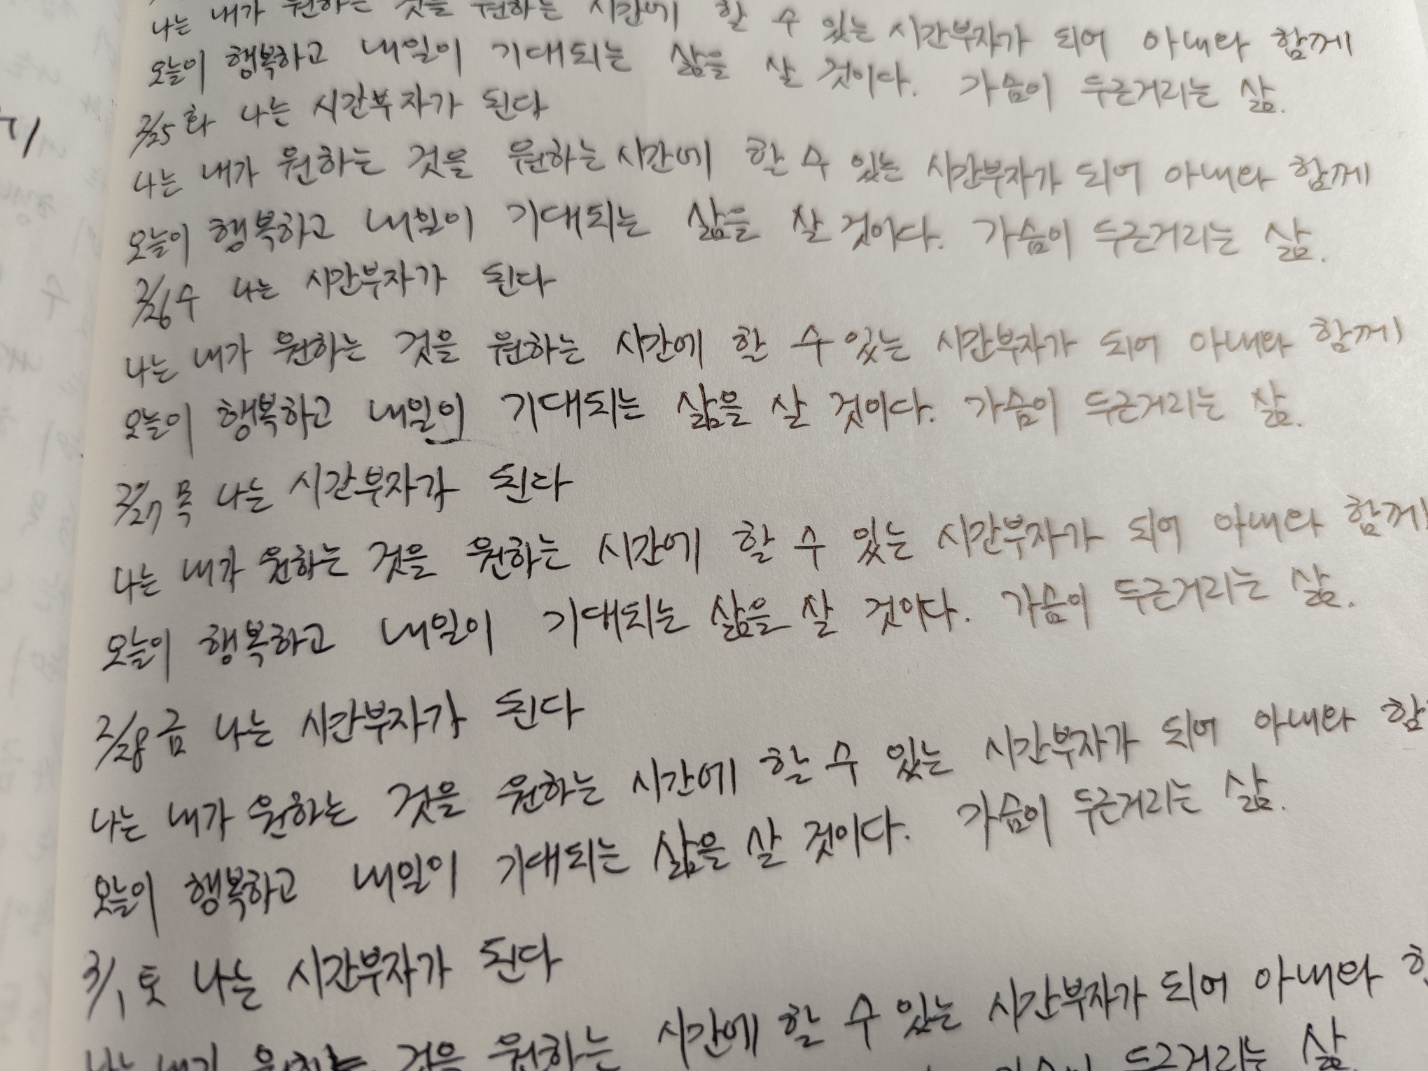 나는 내가 원하는 것을 원하는 시간에 할 수 있는 시간부자가 되어 아내와 함께
오늘이 행복하고 내일이 기대되는 삶을 살 것이다. 가슴이 두근거리는 삶.
2/25 화 나는 시간부자가 된다
나는 내가 원하는 것을 원하는 시간에 할 수 있는 시간부자가 되어 아내와 함께
오늘이 행복하고 내일이 기대되는 삶을 살 것이다. 가슴이 두근거리는 삶.
2/26 수 나는 시간부자가 된다
나는 내가 원하는 것을 원하는 시간에 할 수 있는 시간부자가 되어 아내와 함께
오늘이 행복하고 내일이 기대되는 삶을 살 것이다. 가슴이 두근거리는 삶.
2/27 목 나는 시간부자가 된다
나는 내가 원하는 것을 원하는 시간에 할 수 있는 시간부자가 되어 아내와 함께
오늘이 행복하고 내일이 기대되는 삶을 살 것이다. 가슴이 두근거리는 삶.
2/28 금 나는 시간부자가 된다
나는 내가 원하는 것을 원하는 시간에 할 수 있는 시간부자가 되어 아내와 함
오늘이 행복하고 내일이 기대되는 삶을 살 것이다. 가슴이 두근거리는 삶.
3/1 토 나는 시간부자가 된다
나는 내가 원하는 것을 원하는 시간에 할 수 있는 시간부자가 되어 아내와
가슴이 두근거리는 삶